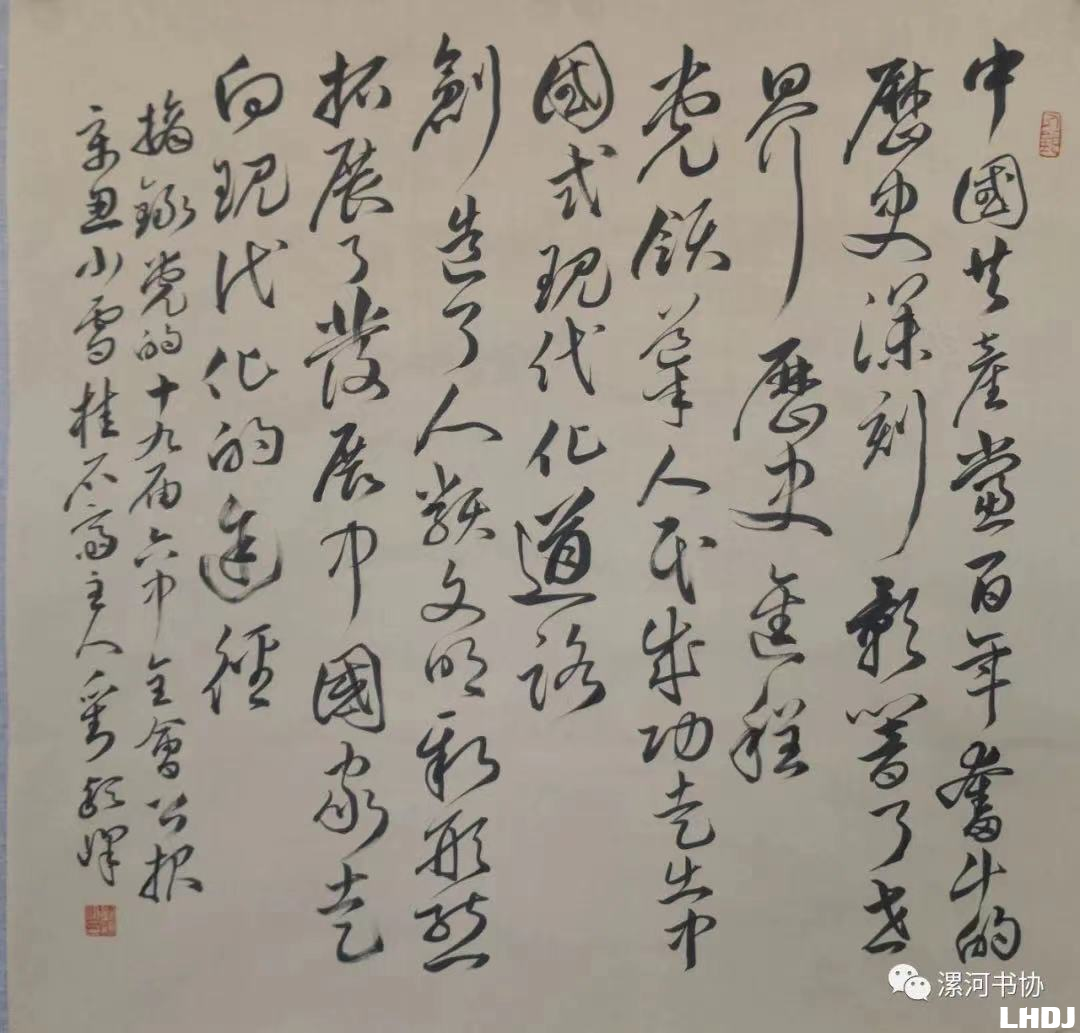 中國共產黨百年奮斗的
歷史深刻影響了世
界歷史進程
党領導人民成功走出中
國式现代化道路
創造了人類文明新形態
拓展了發展中國家走
向现代化的途徑
摘錄党的十九届六中全會公报
辛丑小雪桂石齋主人
漯河书协
LHDJ